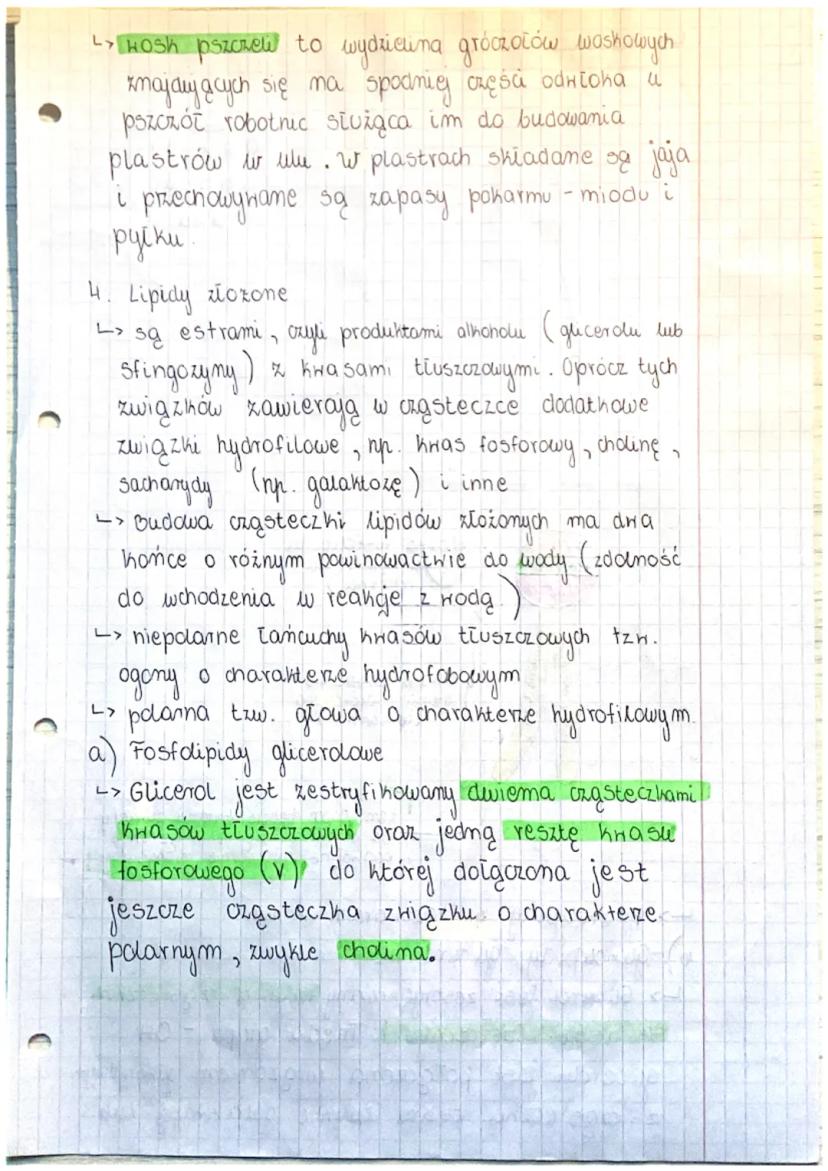 ↳ wosk pszczeli to wydzielina gróczołów woskowych
znajdujących się na spodniej części odwłoka u
pszczół robotnic służąca im do budowania
plastrów w ulu. W plastrach składane są jaja
i przechowywane są zapasy pokarmu - miodu i
pyłku.
4. Lipidy złożone
↳ są estrami, czyli produktami alkoholu (glicerolu lub
sfingozyny) z kwasami tłuszczowymi. Oprócz tych
związków zawierają w cząsteczce dodatkowe
związki hydrofilowe, np. kwas fosforowy, cholinę,
sacharydy (np. galaktozę) i inne
↳ Budowa cząsteczki lipidów złożonych ma dwa
końce o różnym powinowactwie do wody (zdolność
do wchodzenia w reakcje z wodą)
↳ niepolarne łańcuchy kwasów tłuszczowych tzw.
ogony o charakterze hydrofobowym
↳ polarna tzw. głowa o charakterze hydrofilowym.
a) Fosfolipidy glicerolowe
↳ Glicerol jest zestryfikowany dwiema cząsteczkami
kwasów tłuszczowych oraz jedną resztę kwasu
fosforowego (V) do której dołączona jest
jeszcze cząsteczka związku o charakterze
polarnym, zwykle cholina.